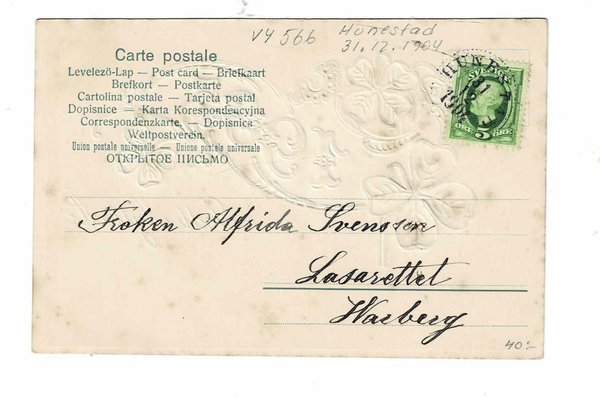 VY 566 Hunestad
31.12.1904
Carte postale
Levelező-Lap — Post card — Briefkaart
Brefkort — Postkarte
Cartolina postale — Tarjeta postal
Dopisnice — Karta Korespondencyjna
Correspondenzkarte. — Dopisnica
Weltpostverein.
Union postale universelle — Unione postale universale
ОТКРЫТОЕ ПИСЬМО
SVERIGE
ÖRE 5 ÖRE
Froken Alfrida Svensson
Lasarettet
Warberg
40:-